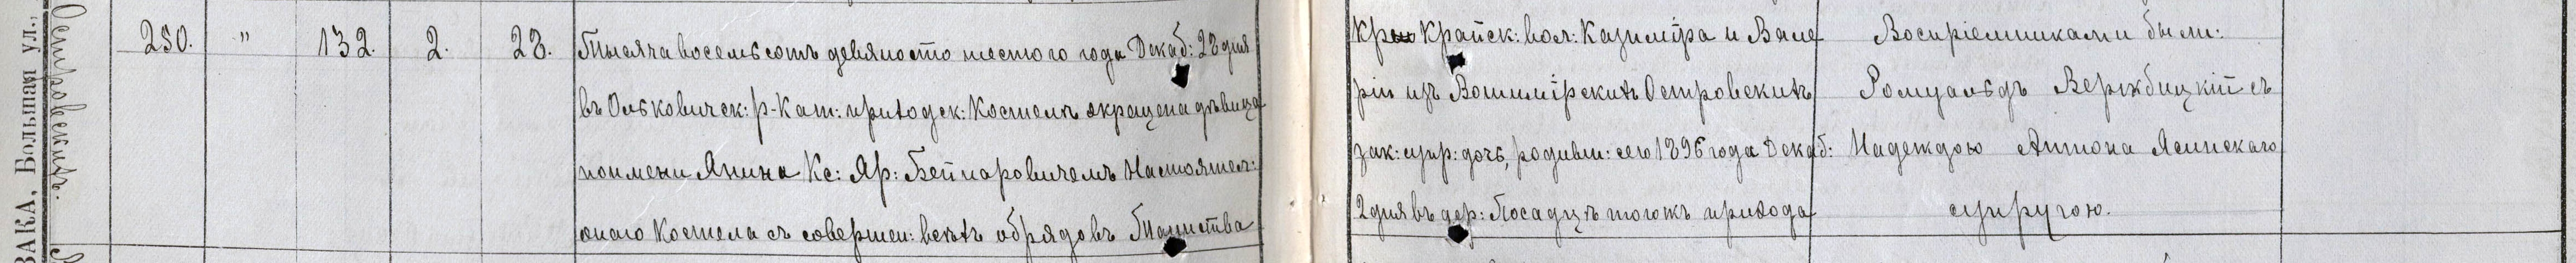 ЗАКА, Большая ул.,
Островскихъ.
250. " 132. 2. 28.
Тысяча восемьсотъ девяносто шестого года Декаб: 28 дня
въ Ольковичск: р-Кат: приходск: Костелѣ окрещена дѣвица
по имени Янина Кс: Яр: Бейнаровичемъ Настоятел:
онаго Костела съ совершен: всѣхъ обрядовъ Таинства
Крайск: вол: Казиміра и Вале
ріи изъ Островскихъ
зак: супр: дочь, родивш: сего 1896 года Декаб:
2 дня въ дер: Посадцѣ тогожъ прихода
Воспріемниками были:
Ромуальдъ Вержбицкій съ
Надеждою Антона Ясинскаго
супругою.